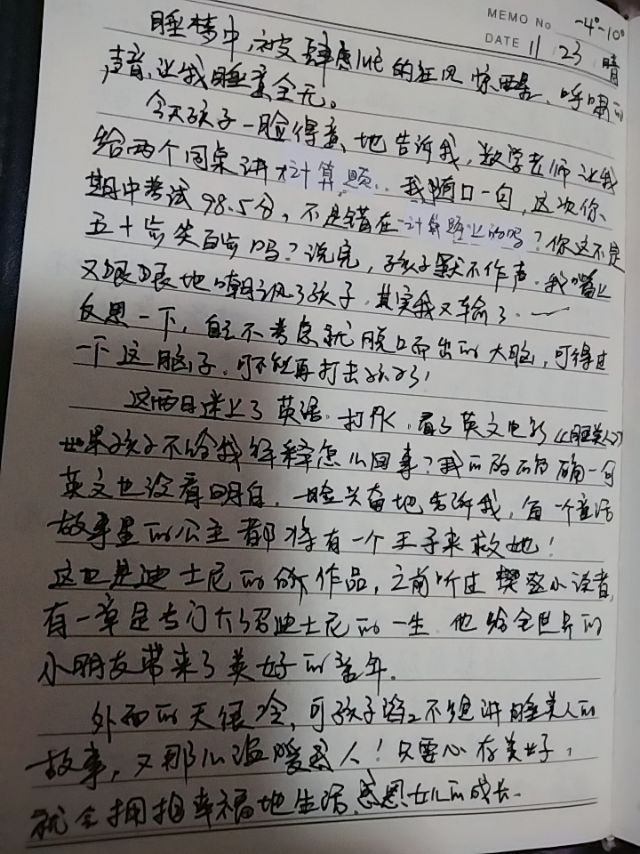 MEMO No -4°-10°
DATE 11 23 晴
睡梦中,被肆虐lue的狂风惊醒、呼啸的
声音,让我睡意全无。
今天孩子一脸得意地告诉我,数学老师让我
给两个同桌讲计算题.. 我随口一句,这次你
期中考试98.5分,不是错在计算题上的吗?你这不是
五十步笑百步吗?说完,孩子默不作声.我嘴上
又狠狠地嘲讽了孩子,其实我又输了.
反思一下,自己不考虑就脱口而出的大脑,可得过
一下这脑子.可不能再打击孩子了!
这两日迷上了英语.打PK,看了英文电影《睡美人》
如果孩子不给我解释怎么回事?我的的确确一句
英文也没看明白.一脸兴奋地告诉我,每一个童话
故事里的公主都将有一个王子来救她!
这也是迪士尼的作品,之前听过樊登小读者,
有一章是专门介绍迪士尼的一生.他给全世界的
小朋友带来了美好的童年.
外面的天很冷,可孩子滔滔不绝讲睡美人的
故事,又那么温暖人!只要心存美好,
就会拥抱幸福地生活.感恩女儿的成长.